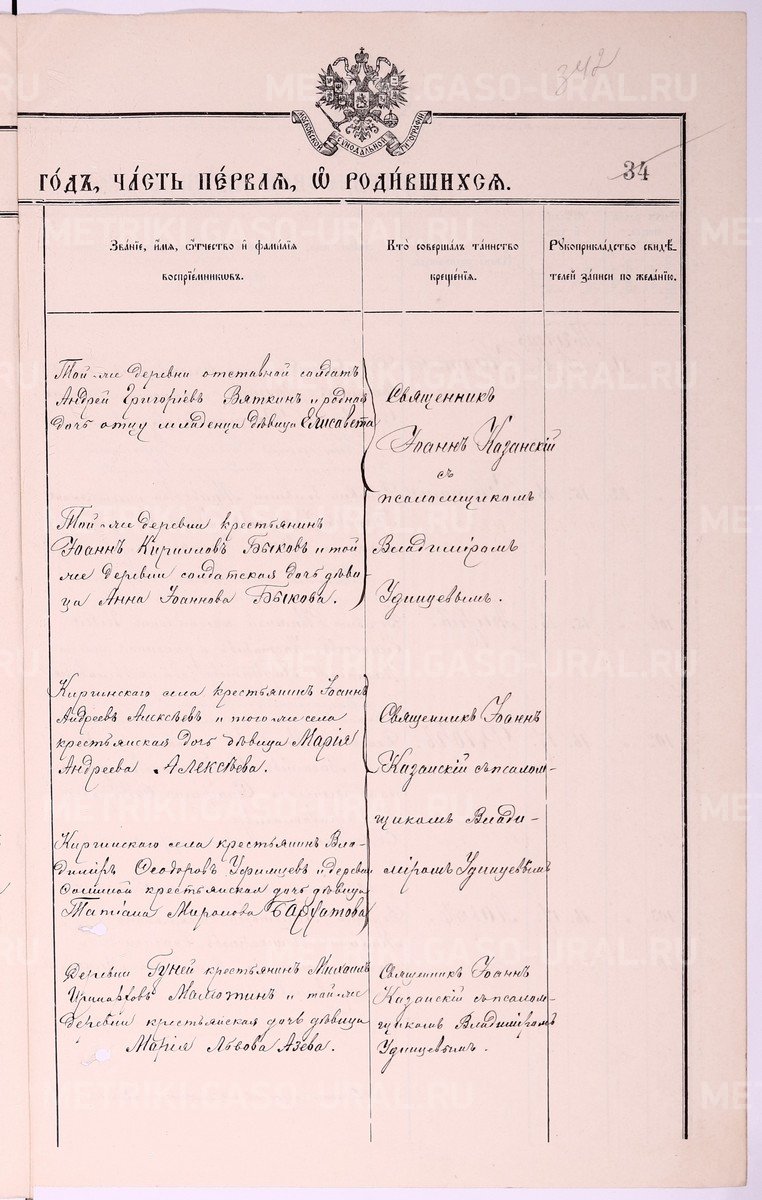 342
МОСКОВСКОЙ СѴНОДАЛЬНОЙ ТИПОГРАФІИ
34
ГО́ДЪ, ЧА́СТЬ ПЕ́РВАѦ, Ѡ҆ РОДИ́ВШИХСѦ.
Зва́нїе, и҆́мѧ, ѻ҆́тчество и҆ фами́лїѧ
воспрїе́мникѡвъ.
Кто̀ соверша́лъ та́инство
креще́нїѧ.
Рꙋкоприкла́дство свидѣ́-
телей за́писи по жела́нїю.
Той-же деревни отставной солдатъ
Андрей Григоріевъ Вяткинъ и родная
дочь отцу младенца дѣвица Елисавета
Священникъ
Іоаннъ Казанскій
съ
псаломщикомъ
Владиміромъ
Удинцевымъ.
Той-же деревни крестьянинъ
Іоаннъ Кирилловъ Быковъ и той
же деревни солдатская дочь дѣви-
ца Анна Іоаннова Быкова.
Киргинскаго села крестьянинъ Іоаннъ
Андреевъ Алексѣевъ и того-же села
крестьянская дочь дѣвица Марія
Андреева Алексѣева.
Священникъ Іоаннъ
Казанскій съ псалом-
щикомъ Влади-
міромъ Удинцевымъ
Киргинскаго села крестьянинъ Вла-
диміръ Ѳеодоровъ Уфимцевъ и деревни
крестьянская дочь дѣвица
Татіана Миронова Бархатова
Деревни Гуней крестьянинъ Михаилъ
Иринарховъ Мамозинъ и той-же
деревни крестьянская дочь дѣвица
Марія Львова Азева.
Священникъ Іоаннъ
Казанскій съ псалом-
щикомъ Владиміромъ
Удинцевымъ.
METRIKI.GASO-URAL.RU